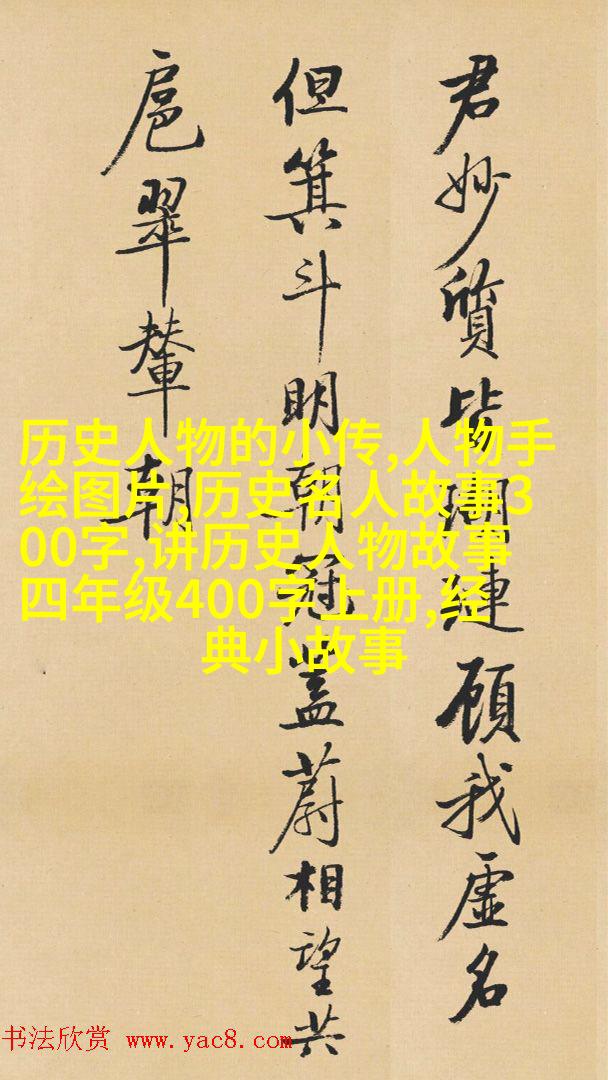 君妙質皆瑚璉顧我虛名
但箕斗明朝冠蓋蔚相望共
扈翠輦朝
历史人物的小传,人物手
绘图片,历史名人故事3
00字,讲历史人物故事
四年级400字上册,经
典小故事
书法欣赏 www.yac8.com